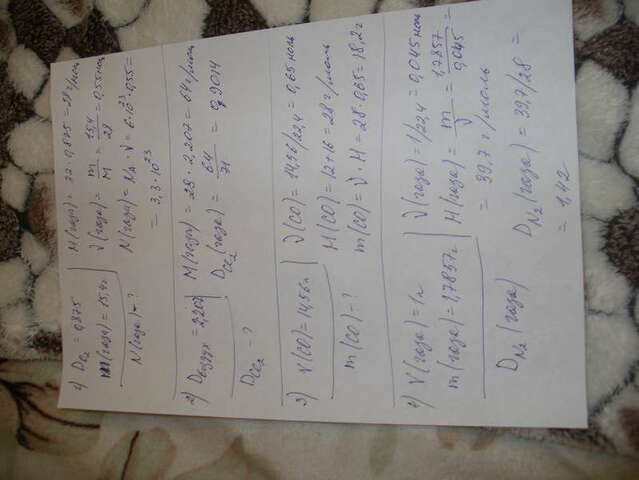 1) D O₂ = 0,875
m(газа) = 15,4 г
N(газа) - ?
M(газа) = 32 · 0,875 = 28 г/моль
ν(газа) = m/M = 15,4/28 = 0,55 моль
N(газа) = NA · ν = 6·10²³ · 0,55 =
= 3,3 · 10²³
2) D воздух = 2,207
D Cl₂ - ?
M(газа) = 28 · 2,207 = 64 г/моль
D Cl₂ (газа) = 64/71 = 0,9014
3) V(CO) = 14,56 л
m(CO) - ?
ν(CO) = 14,56/22,4 = 0,65 моль
M(CO) = 12+16 = 28 г/моль
m(CO) = ν · M = 28 · 0,65 = 18,2 г
4) V(газа) = 1 л
m(газа) = 1,7857 г
D N₂ (газа)
ν(газа) = 1/22,4 = 0,045 моль
M(газа) = m/ν = 1,7857/0,045 =
= 39,7 г/моль
D N₂ (газа) = 39,7/28 =
= 1,42